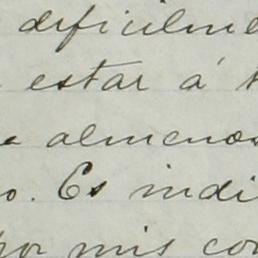 dificilme
estar á
almenos
o. Es indi
por mis con